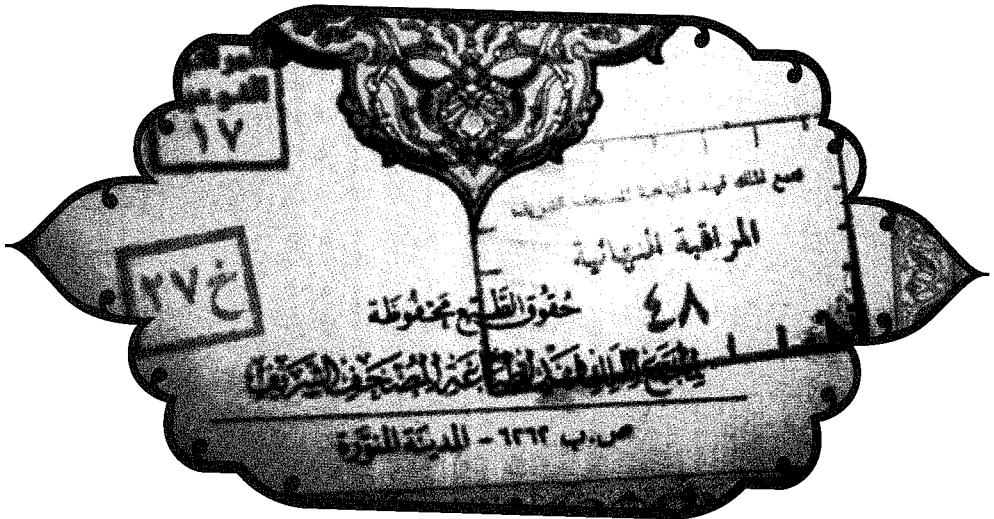 المراقبة
النوعية
١٧
مجمع الملك فهد لطباعة المصحف الشريف
المراقبة النهائية
٤٨
خ ٢٧
حُقُوقُ الطَّبْعِ مَحْفُوظَة
لِمُجَمَّعِ المَلِكِ فَهْد لِطِبَاعَةِ المُصْحَفِ الشَّرِيفِ
ص.ب ٦٢٦٢ - المَدِينَة المُنَوَّرَة